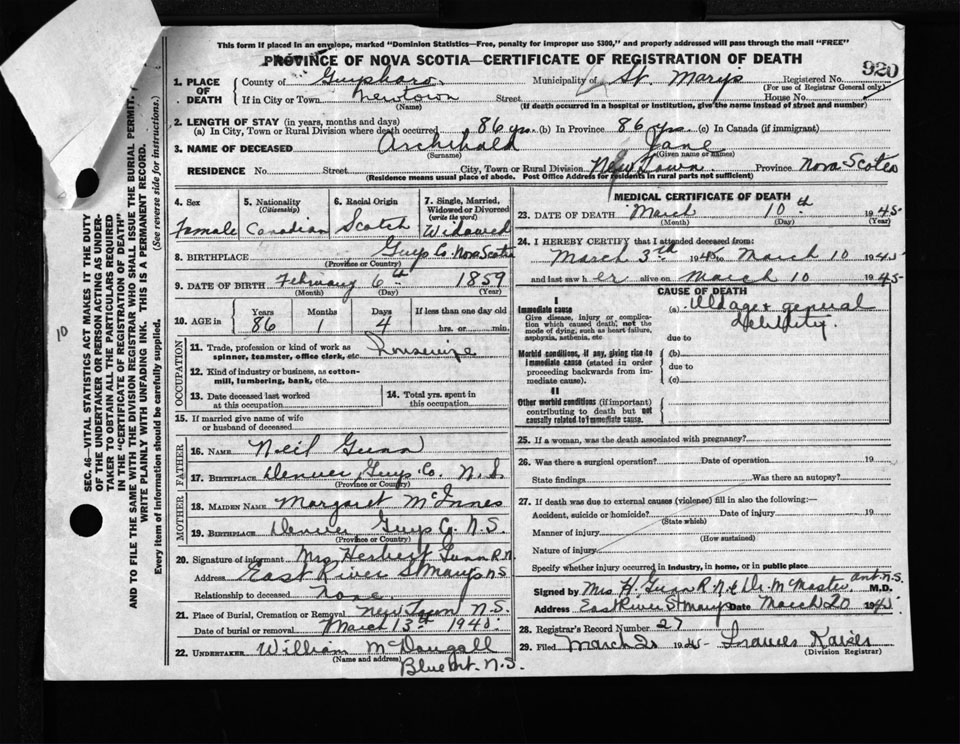 This form if placed in an envelope, marked "Dominion Statistics—Free, penalty for improper use $300," and properly addressed will pass through the mail "FREE"
PROVINCE OF NOVA SCOTIA—CERTIFICATE OF REGISTRATION OF DEATH
920
1. PLACE OF DEATH County of Guysboro Municipality of St. Marys Registered No.
(For use of Registrar General only)
If in City or Town Newtown Street House No.
(Name) (If death occurred in a hospital or institution, give the name instead of street and number)
2. LENGTH OF STAY (in years, months and days)
(a) In City, Town or Rural Division where death occurred 86 yrs. (b) In Province 86 yrs (c) In Canada (if immigrant)
3. NAME OF DECEASED Archibald Jane
(Surname) (Given name or names)
RESIDENCE No. Street City, Town or Rural Division New Town. Province Nova Scotia
(Residence means usual place of abode. Post Office Address for residents in rural parts not sufficient)
4. Sex 5. Nationality (Citizenship) 6. Racial Origin 7. Single, Married, Widowed or Divorced (write the word)
Female Canadian Scotch Widowed
8. BIRTHPLACE Guys Co. Nova Scotia
(Province or Country)
9. DATE OF BIRTH February 6th 1859
(Month) (Day) (Year)
10. AGE in Years Months Days If less than one day old
86 1 4 hrs. or min.
OCCUPATION
11. Trade, profession or kind of work as spinner, teamster, office clerk, etc. Housewife
12. Kind of industry or business, as cotton-mill, lumbering, bank, etc.
13. Date deceased last worked at this occupation 14. Total yrs. spent in this occupation
15. If married give name of wife or husband of deceased
FATHER
16. NAME Neil Gunn
17. BIRTHPLACE Denver Guys Co. N.S.
(Province or Country)
MOTHER
18. MAIDEN NAME Margaret McInnes
19. BIRTHPLACE Denver Guys Co. N.S.
(Province or Country)
20. Signature of informant Mrs Herbert Gunn R.N.
Address East River St Marys N.S
Relationship to deceased none
21. Place of Burial, Cremation or Removal New Town N.S.
Date of burial or removal March 13th 1945
22. UNDERTAKER William McDougall
(Name and address) Blue Mt. N.S.
MEDICAL CERTIFICATE OF DEATH
23. DATE OF DEATH March 10th 1945
(Month) (Day) (Year)
24. I HEREBY CERTIFY that I attended deceased from:
March 3rd 1945 to March 10 1945
and last saw her alive on March 10 1945
CAUSE OF DEATH
I
Immediate cause
Give disease, injury or complication which caused death, not the mode of dying, such as heart failure, asphyxia, asthenia, etc
(a) Old age & general debility.
due to
Morbid conditions, if any, giving rise to immediate cause (stated in order proceeding backwards from immediate cause).
(b)
due to
(c)
II
Other morbid conditions (if important) contributing to death but not causally related to immediate cause.
25. If a woman, was the death associated with pregnancy?
26. Was there a surgical operation? Date of operation 19
State findings Was there an autopsy?
27. If death was due to external causes (violence) fill in also the following:—
Accident, suicide or homicide? Date of injury 19
(State which)
Manner of injury
(How sustained)
Nature of injury
Specify whether injury occurred in industry, in home, or in public place
Signed by Mrs H. Gunn R.N. & Dr. McMaster Ant. N.S. M.D.
Address East River St Marys Date March 20 1945
28. Registrar's Record Number 27
29. Filed March 20 1945 Frances Kaiser
(Division Registrar)
SEC. 46—VITAL STATISTICS ACT MAKES IT THE DUTY
OF THE UNDERTAKER OR PERSON ACTING AS UNDER-
TAKER TO OBTAIN ALL THE PARTICULARS REQUIRED
IN THE "CERTIFICATE OF REGISTRATION OF DEATH"
AND TO FILE THE SAME WITH THE DIVISION REGISTRAR WHO SHALL ISSUE THE BURIAL PERMIT.
WRITE PLAINLY WITH UNFADING INK. THIS IS A PERMANENT RECORD.
Every item of information should be carefully supplied. (See reverse side for instructions.)
10